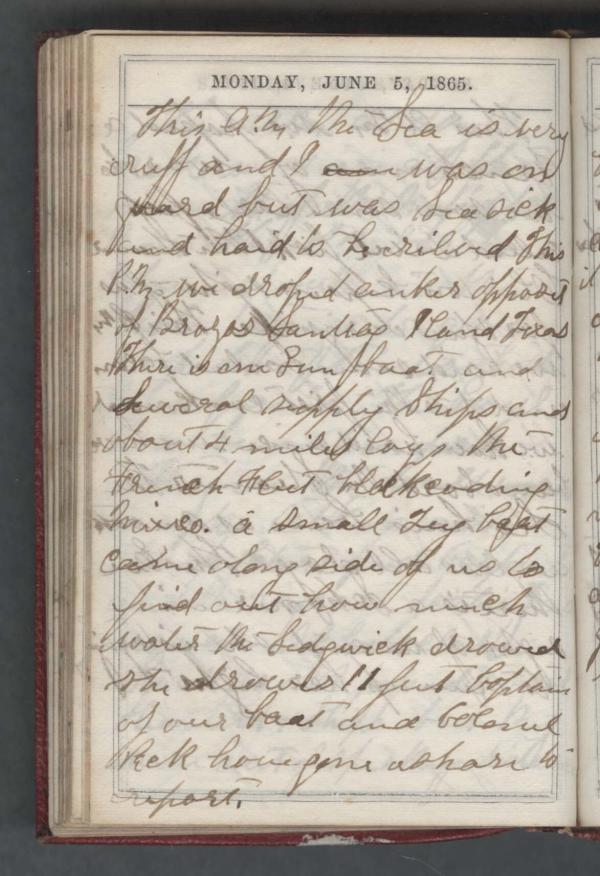 MONDAY, JUNE 5, 1865.
This A.M. the Sea is very
ruff and I am was on
guard but was Sea sick
and haid to be rilived This
P.M. we droped anker opposit
of Brazos Santiag Iland Texas
There is one Gun boat and
several supply Ships and
about 4 miles lays the
French Fleet blockcoding
Mixco. a small Tug boat
came along side of us to
find out how much
water the Sedgwick drowed
she drowes 11 feet Coptain
of our boat and Colonel
have gone ashore to
report.